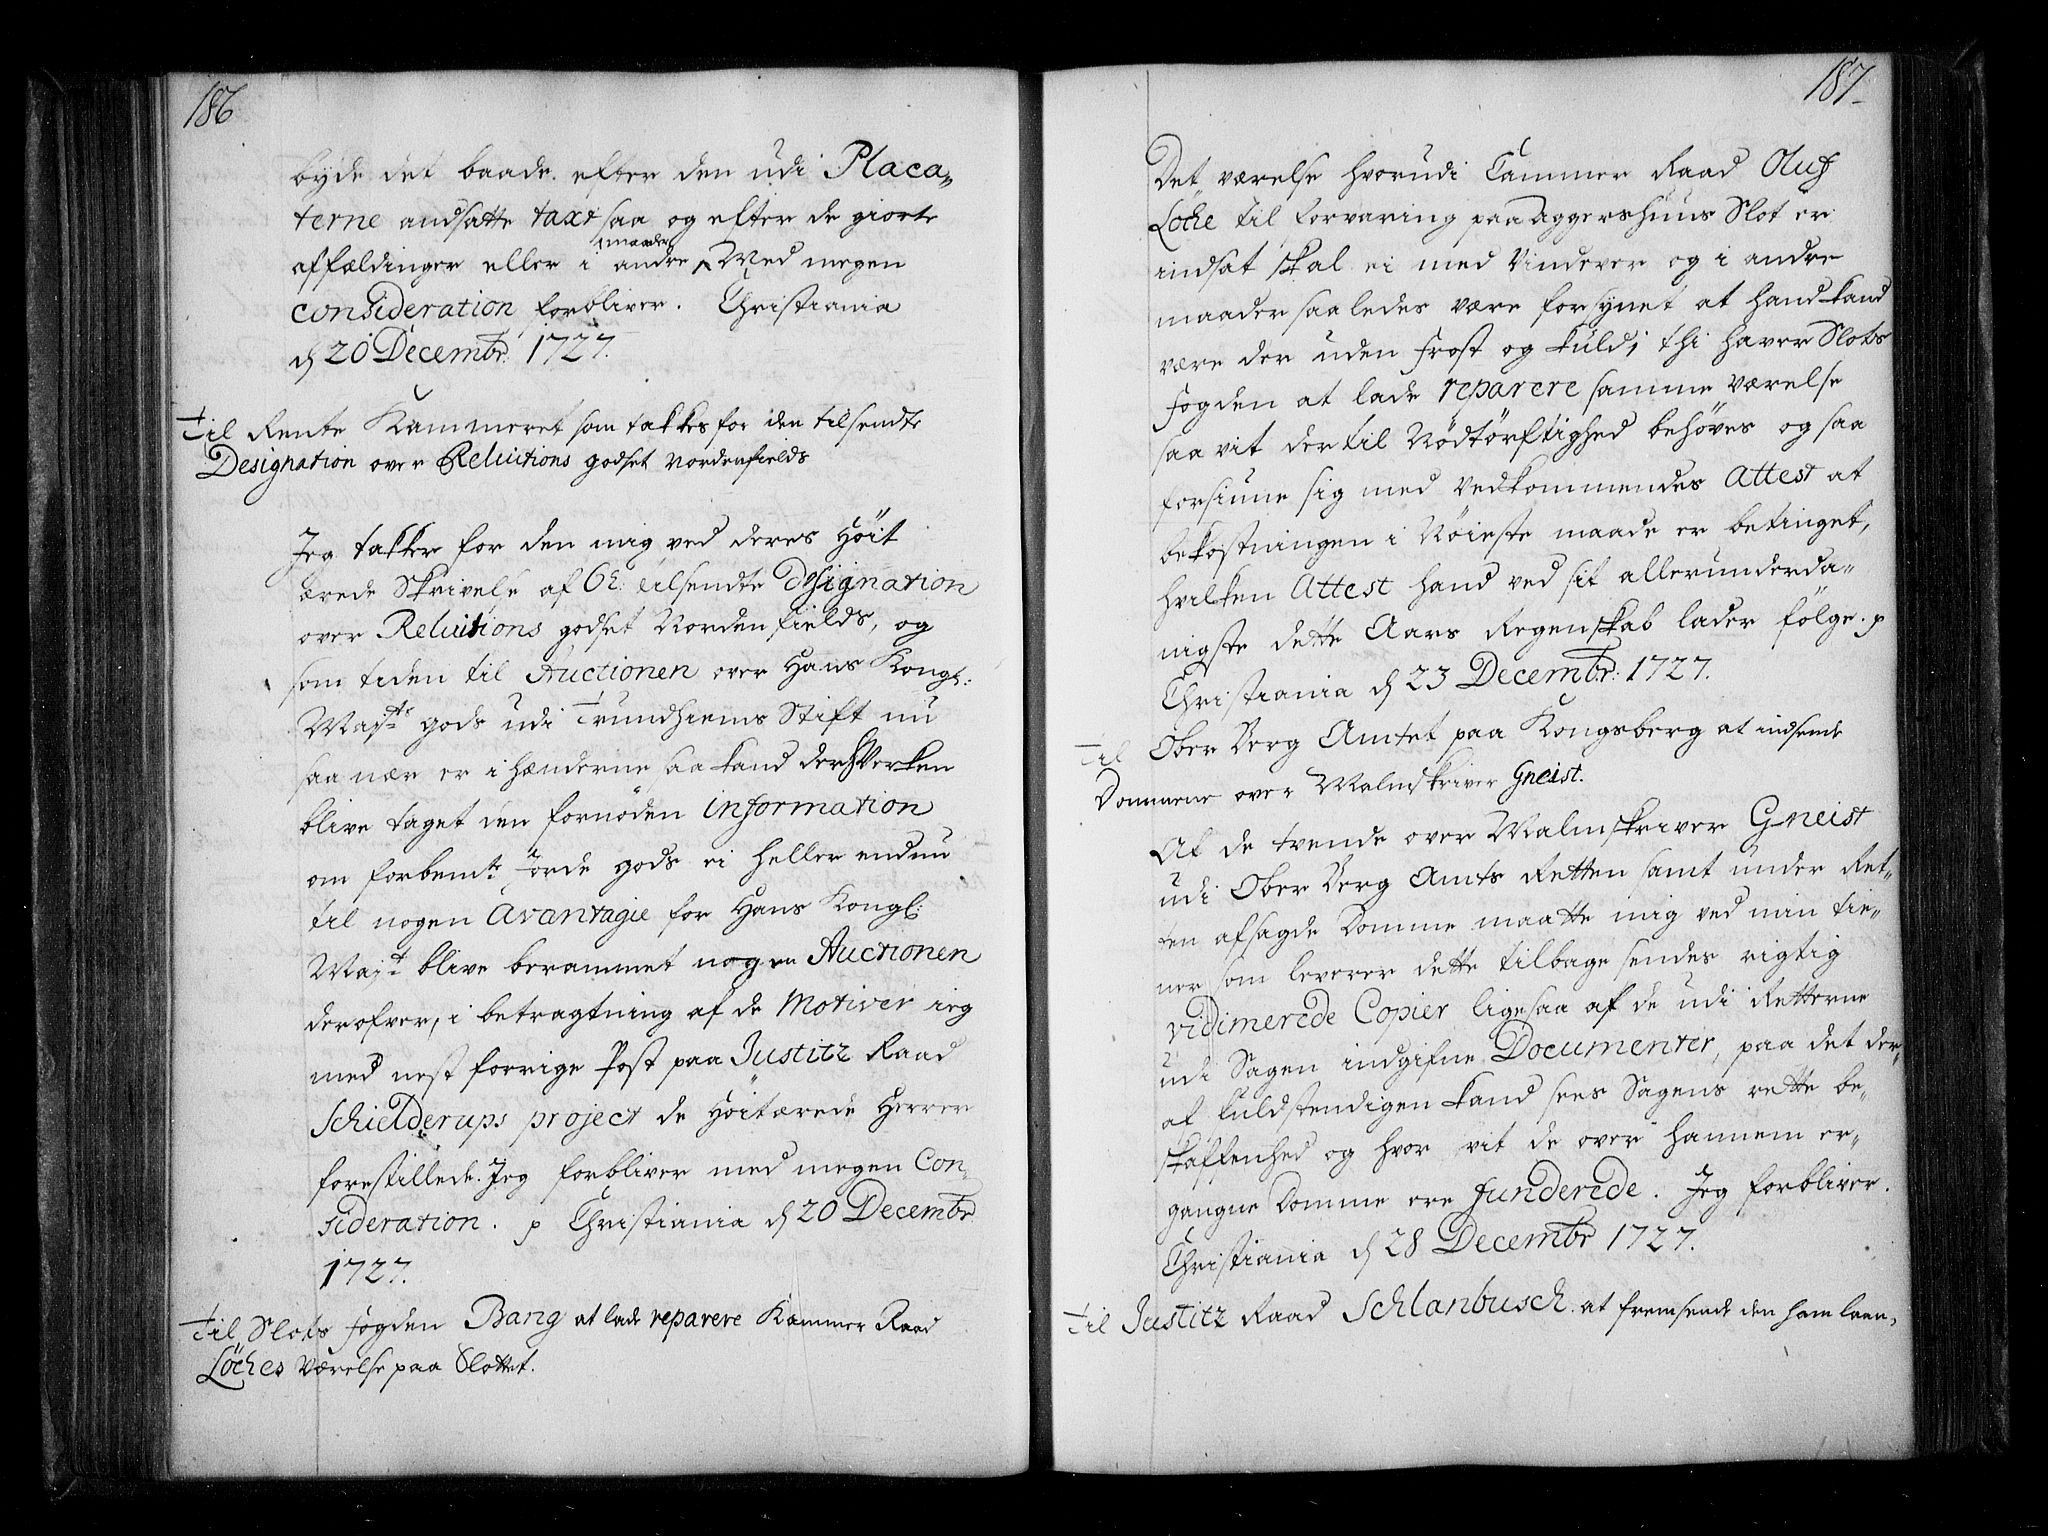 186
byde det baade efter den udi Placa„
terne andsatte taxt saa og efter de giorte
affældinger eller i andre maader Med megen
consideration forbliver. Christiania
d 20 Decembr: 1727.
Til Rente Kammeret som takkes for den tilsendte
Designation over Reluitions godset Nordenfields
Jeg takker for den mig ved deres Høit
ærede Skrivelse af 6t: tilsendte Designation
over Reluitions godset Nordenfields, og
som tiden til Auctionen over Hans Kongl:
Majts gods udi Trundhiems Stift nu
saa nær er i hænderne saa kand der hverken
blive taget den fornöden information
om forbemte Jorde gods ei heller endnu
til nogen Avantagie for Hans Kongl:
Majt blive berammet nogen Auctionen
derofver, i betragtning af de Motiver ieg
med nest forrige Post paa Justitz Raad
Schielderups project de Höitærede Herrer
forestillede. Jeg forbliver med megen Con„
sideration. p Christiania d 20 Decembr
1727.
Til Slots Fogden Bang at lade reparere Kammer Raad
Löches Værelse paa Slottet.
187
Det værelse hvorudi Cammer Raad Oluf
Löche til forvaring paa Aggershuus Slot er
indsat skal ei med Vindever og i andre
maader saaledes være forsynet at hand kand
være der uden frost og kuld; thi haver Slots
Fogden at lade reparere samme værelse
saa vit dertil Nödtörftighed behöves og saa
forsiune sig med Vedkommendes Attest at
bekostningen i Nöieste maade er betinget,
hvilken Attest hand ved sit allerunderda„
nigste dette Aars Regenskab lader fölge. p
Christiania d 23 Decembr: 1727.
Til Ober Berg Amtet paa Kongsberg at indsende
Dommene over Malmskriver Gneist.
Af de tvende over Malmskriver Gneist
udi Ober Berg Amts Retten samt under Ret„
ten afsagde Domme maatte mig ved min tie„
ner som leverer dette tilbage sendes rigtig
vidimerede Copier ligesaa af de udi Retterne
udi Sagen indgifne Documenter, paa det der„
af fuldstendigen kand sees Sagens rette be„
skaffenhed og hvor vit de over hannem er„
gangne Domme ere funderede. Jeg forbliver.
Christiania d 28 Decembr 1727.
Til Justitz Raad Schlanbusch at fremsende den ham laan„